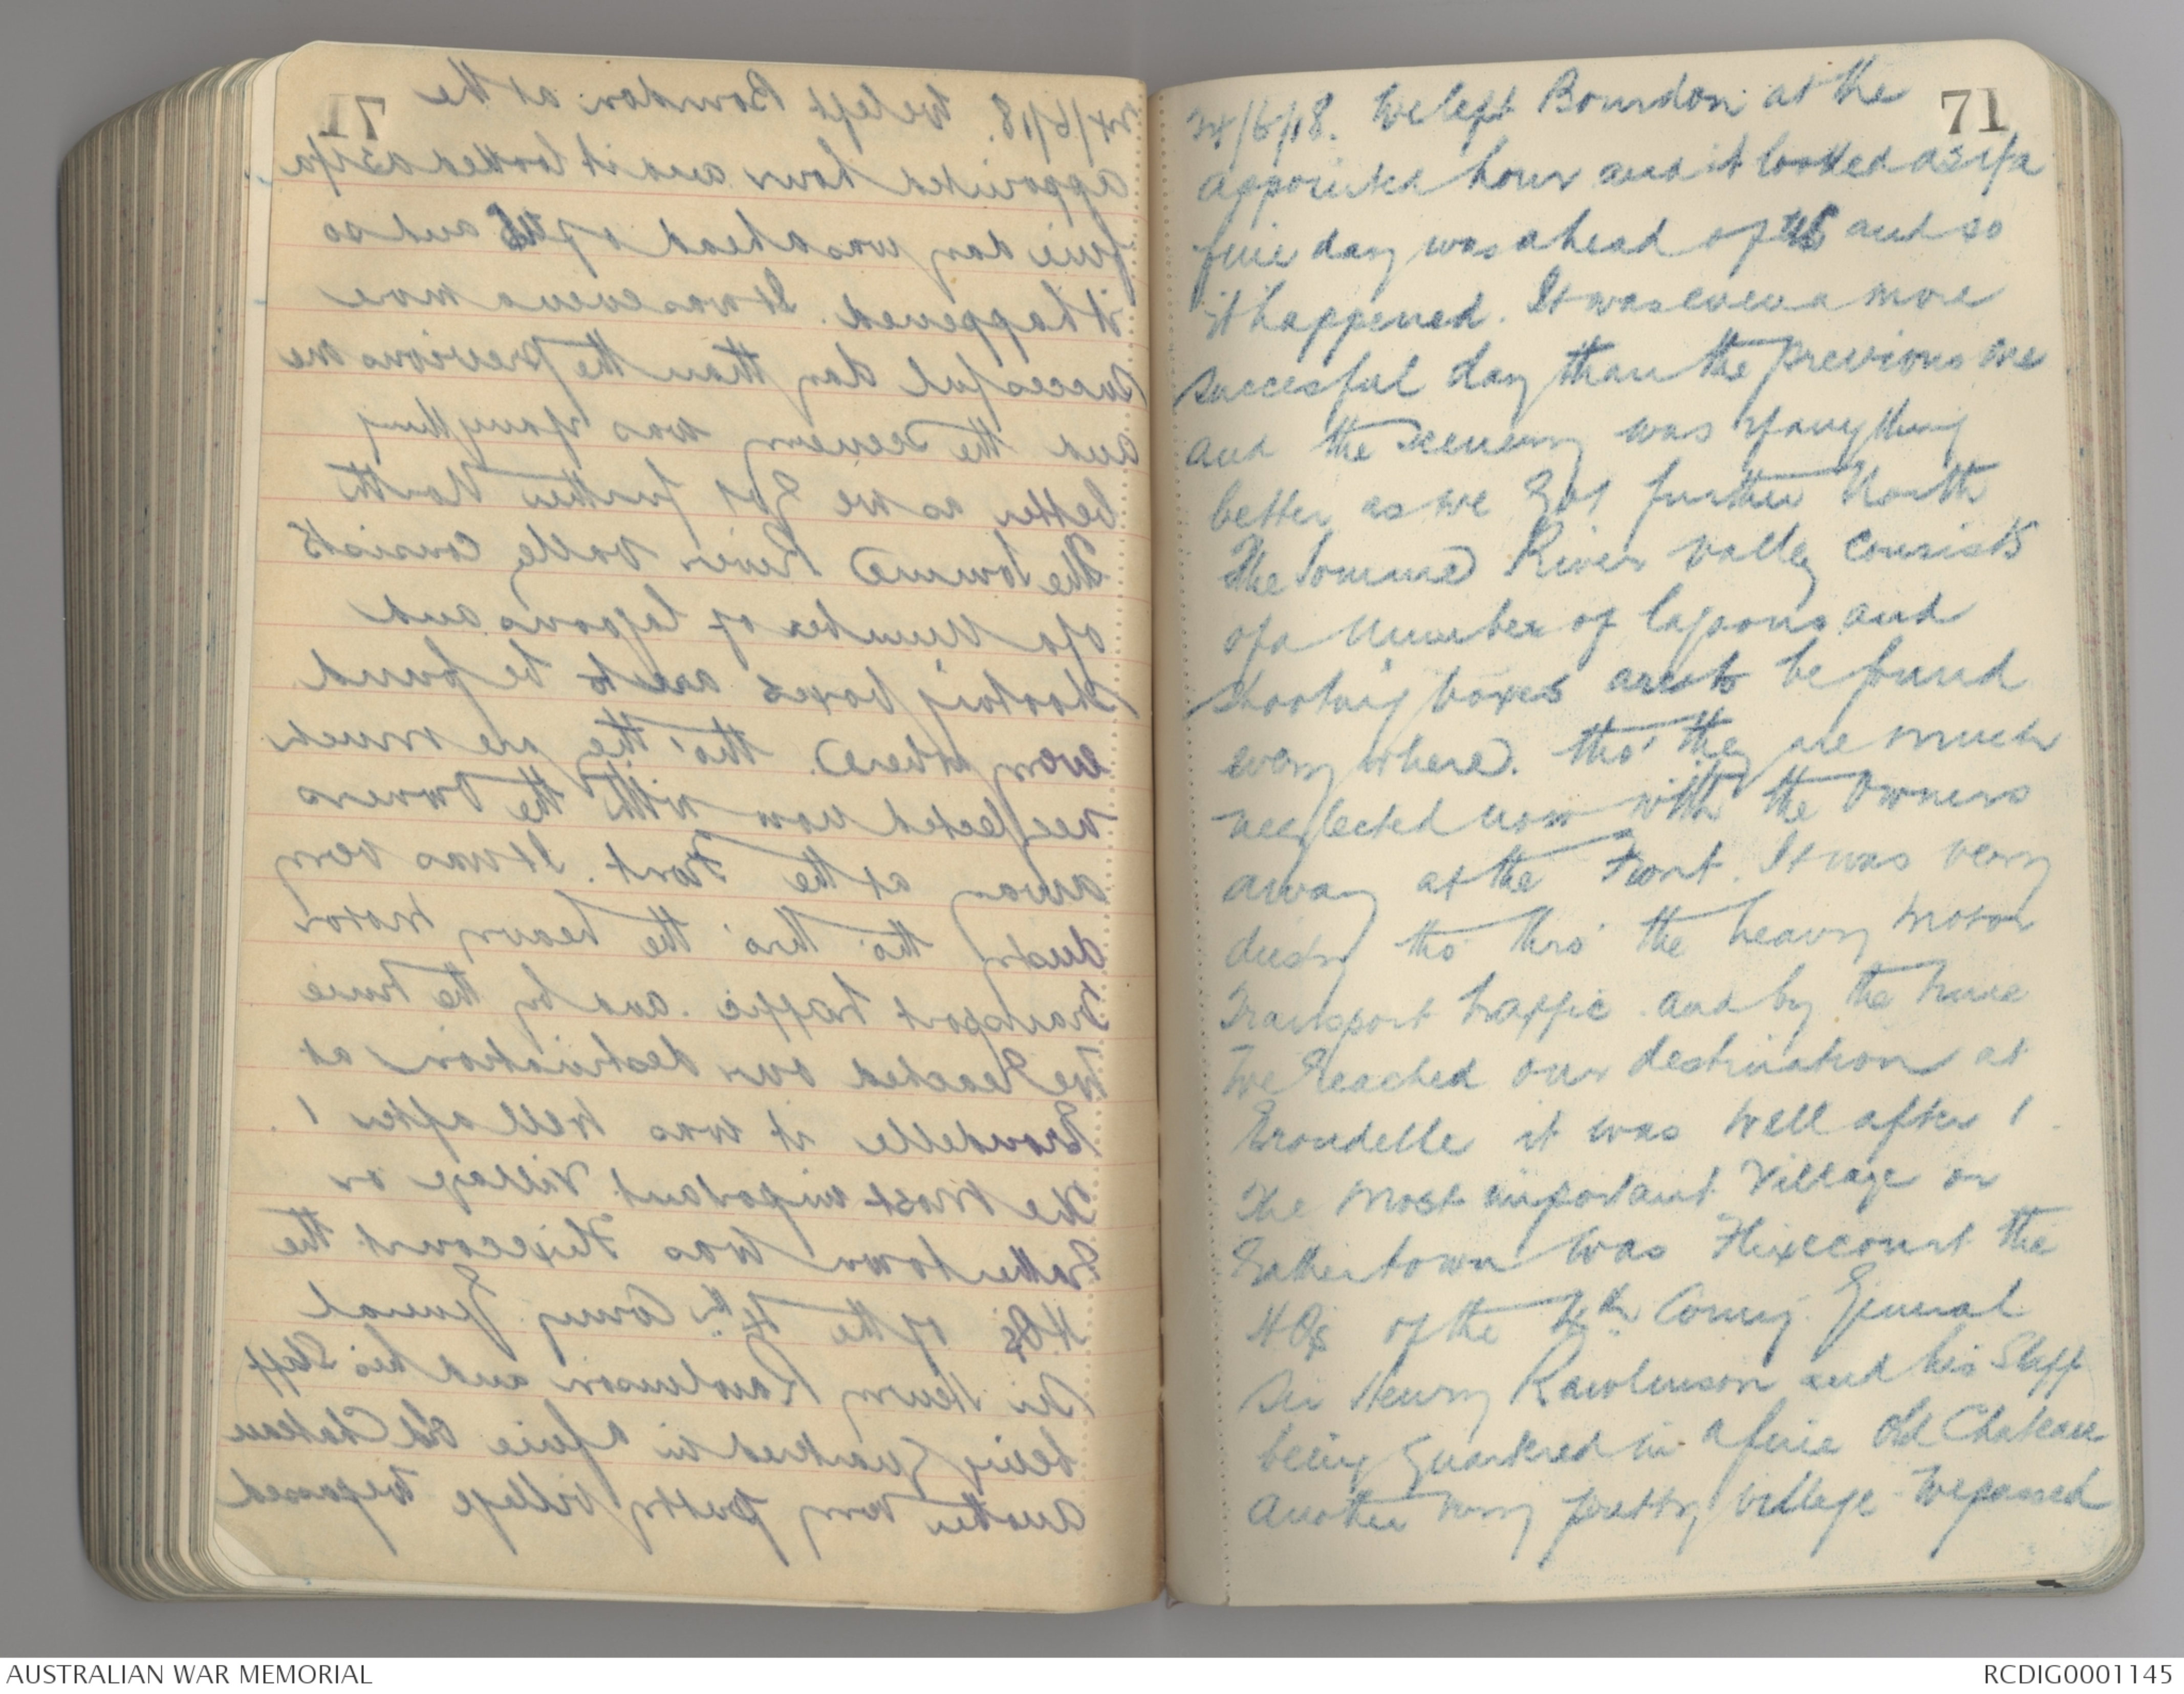 71
24/6/18. We left Bourdon at the
appointed hour and it looked as if a
fine day was ahead of us and so
it happened. It was even a more
succesful day than the previous one
and the scenery was if anything
better as we got further North
The Somme River valley consists
of a number of lagoons and
shooting boxes are to be found
every where. tho' they are much
neglected now with the owners
away at the Front. It was very
dusty tho' thro' the heavy motor
Transport traffic and by the time
We reached our destination at
Erondelle it was well after 1.
The most important Village or
rather town was Flixecourt the
H.Qs of the 4th Army. General
Sir Henry Rawlinson and his Staff
being quartered in a fine old Chateau
another very pretty village we passed
AUSTRALIAN WAR MEMORIAL
RCDIG0001145